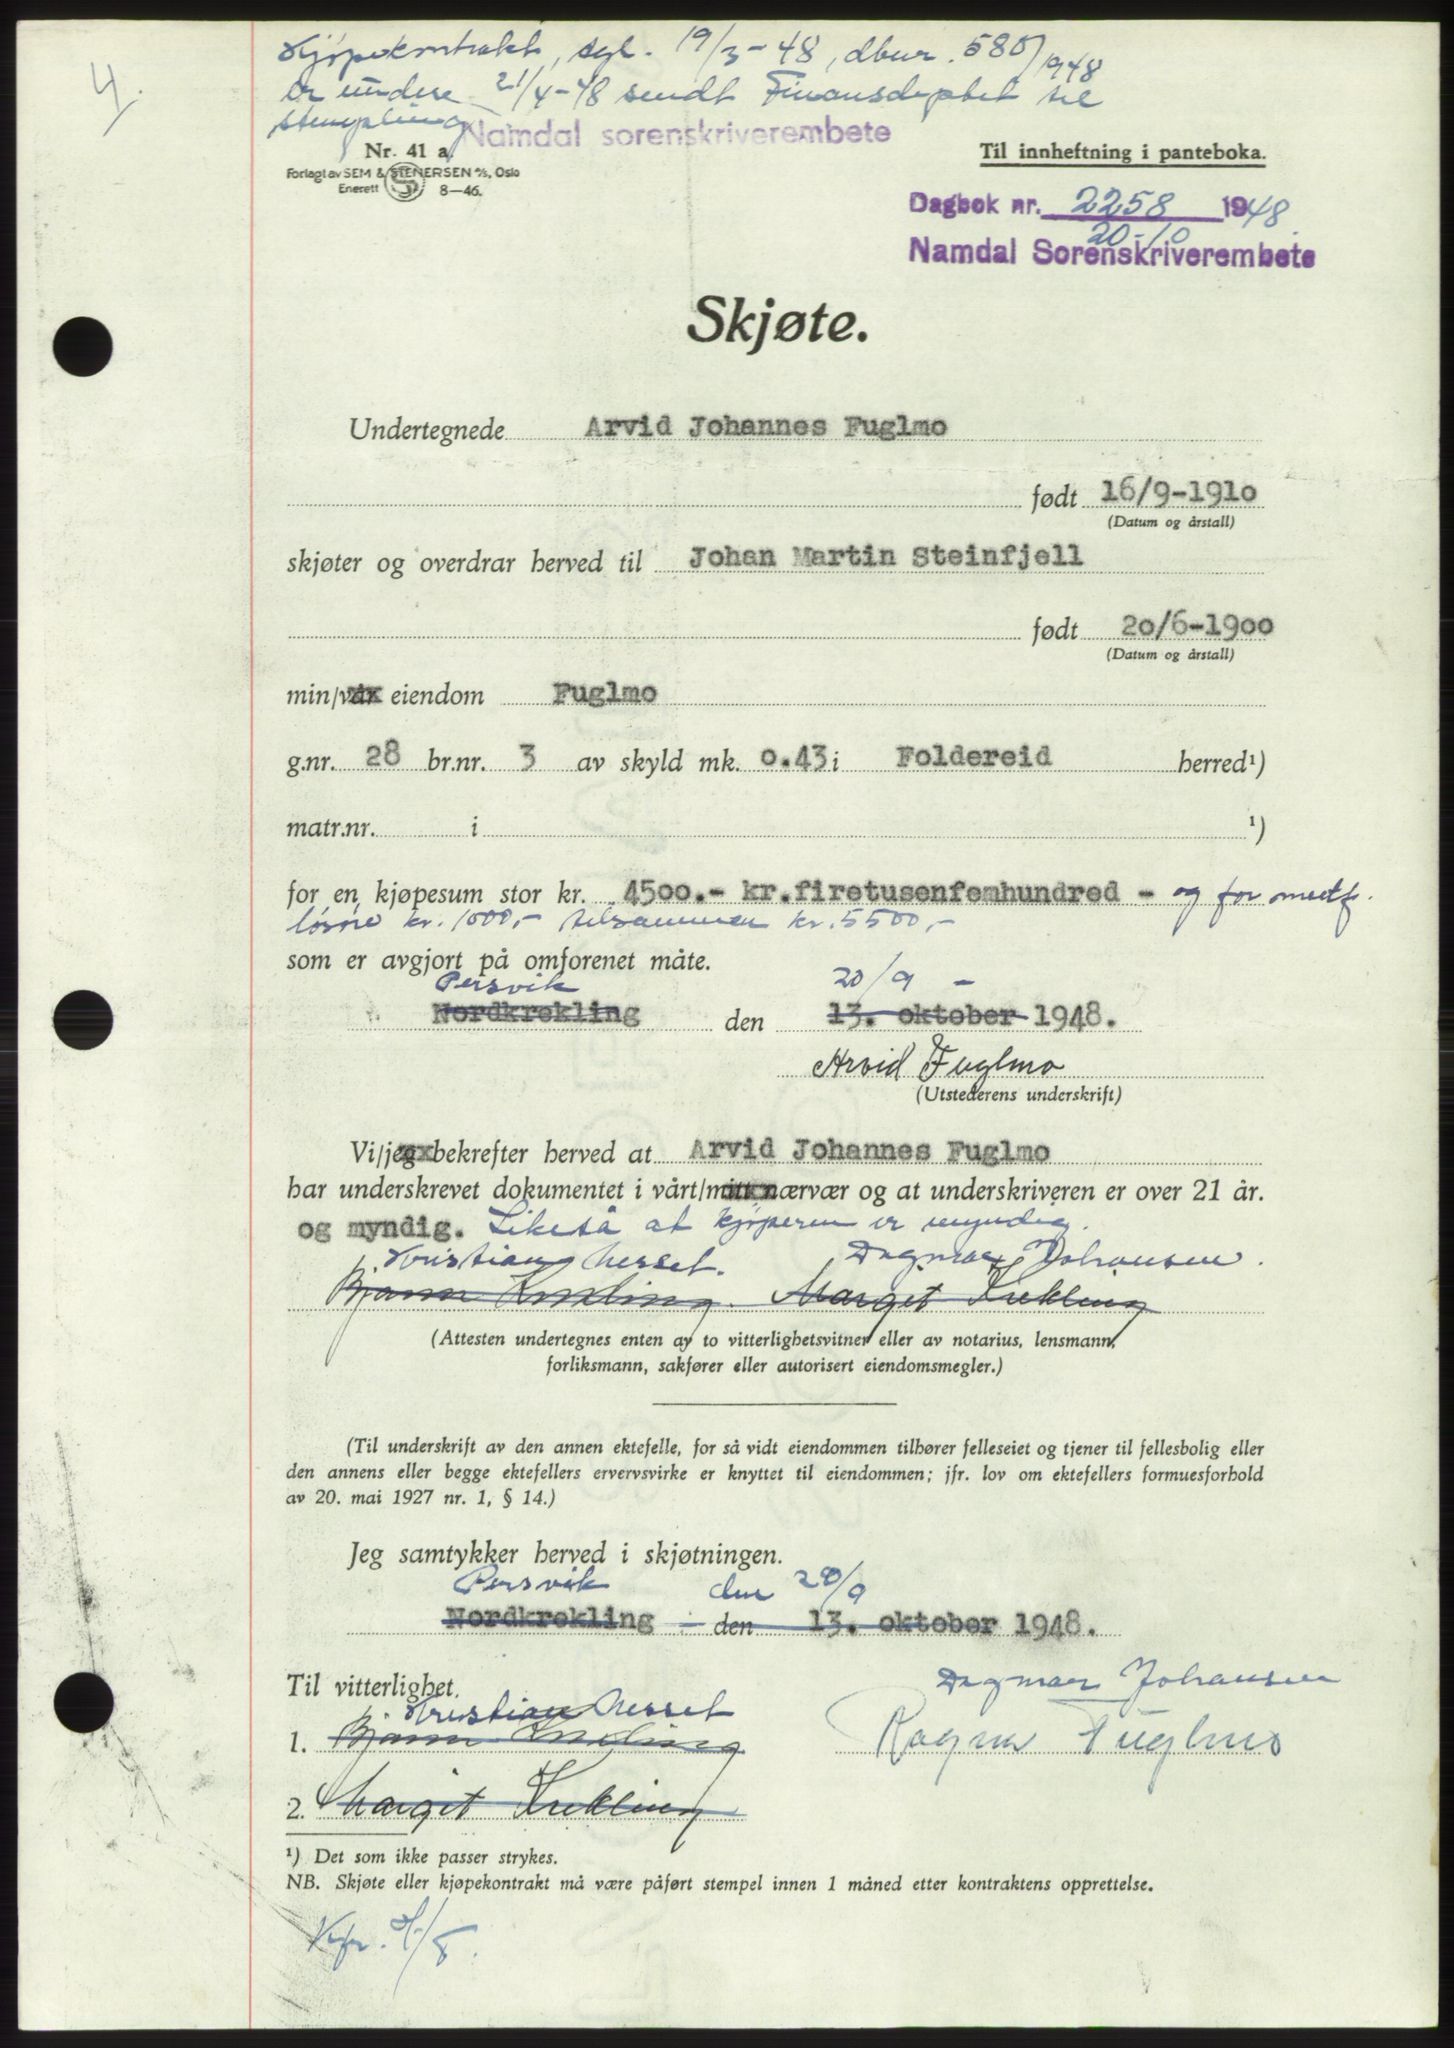 4.
Kjøpekontrakt, tgl. 19/3-48, dbnr. 580/1948
er under 21/4-48 sendt Finansdeptet til
stempling
Namdal sorenskriverembete
Nr. 41 a.
Forlagt av SEM & STENERSEN A/S, Oslo
Enerett S 8—46.
Til innheftning i panteboka.
Dagbok nr. 2258 1948.
20-10
Namdal Sorenskriverembete
Skjøte.
Undertegnede Arvid Johannes Fuglmo
født 16/9-1910
(Datum og årstall)
skjøter og overdrar herved til Johan Martin Steinfjell
født 20/6-1900
(Datum og årstall)
min/vår eiendom Fuglmo
g.nr. 28 br.nr. 3 av skyld mk. 0.43 i Foldereid herred¹)
matr.nr. i ¹)
for en kjøpesum stor kr. 4500.- kr.firetusenfemhundred - og for medf.
løsøre kr. 1000,- tilsammen kr. 5500,-
som er avgjort på omforenet måte.
Persvik 20/9 -
Nordkrekling den 13. oktober 1948.
Arvid Fuglmo
(Utstederens underskrift)
Vi/jeg bekrefter herved at Arvid Johannes Fuglmo
har underskrevet dokumentet i vårt/mitt nærvær og at underskriveren er over 21 år.
og myndig. Likeså at kjøperen er myndig.
Kristian Nesset. Dagmar Johansen.
Krekling. Marget Krekling
(Attesten undertegnes enten av to vitterlighetsvitner eller av notarius, lensmann,
forliksmann, sakfører eller autorisert eiendomsmegler.)
(Til underskrift av den annen ektefelle, for så vidt eiendommen tilhører felleseiet og tjener til fellesbolig eller
den annens eller begge ektefellers ervervsvirke er knyttet til eiendommen; jfr. lov om ektefellers formuesforhold
av 20. mai 1927 nr. 1, § 14.)
Jeg samtykker herved i skjøtningen.
Persvik den 20/9
Nordkrekling - den 13. oktober 1948.
Til vitterlighet.
Dagmar Johansen
Kristian Nesset
1. Krekling
Ragna Fuglmo
2. Marget Krekling
¹) Det som ikke passer strykes.
NB. Skjøte eller kjøpekontrakt må være påført stempel innen 1 måned etter kontraktens opprettelse.